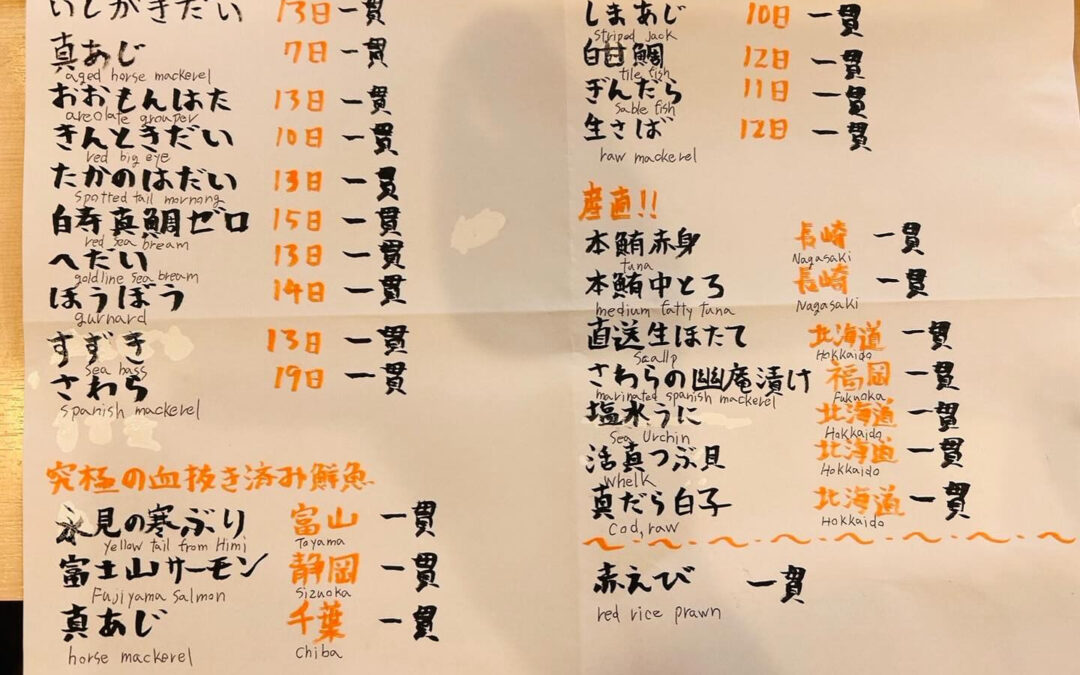 いしがきだい 13日 一貫
真あじ 7日 一貫
aged horse mackerel
おおもんはた 13日 一貫
areolate grouper
きんときだい 10日 一貫
red big eye
たかのはだい 13日 一貫
Spotted tail mornong
白寿真鯛ゼロ 15日 一貫
red sea bream
へだい 13日 一貫
goldline sea bream
ほうぼう 14日 一貫
gurnard
すずき 13日 一貫
Sea bass
さわら 19日 一貫
spanish mackerel
究極の血抜き済み鮮魚
氷見の寒ぶり 富山 一貫
yellow tail from Himi Toyama
富士山サーモン 静岡 一貫
Fujiyama Salmon Sizuoka
真あじ 千葉 一貫
horse mackerel Chiba
しまあじ 10日 一貫
Striped jack
白甘鯛 12日 一貫
tile fish
ぎんだら 11日 一貫
Sable fish
生さば 12日 一貫
raw mackerel
産直!!
本鮪赤身 長崎 一貫
tuna Nagasaki
本鮪中とろ 長崎 一貫
medium fatty tuna Nagasaki
直送生ほたて 北海道 一貫
Scallp Hokkaido
さわらの幽庵漬け 福岡 一貫
marinated spanish mackerel Fukuoka
塩水うに 北海道 一貫
Sea Urchin Hokkaido
活真つぶ貝 北海道 一貫
Whelk Hokkaido
真だら白子 北海道 一貫
Cod, raw Hokkaido
赤えび 一貫
red rice prawn